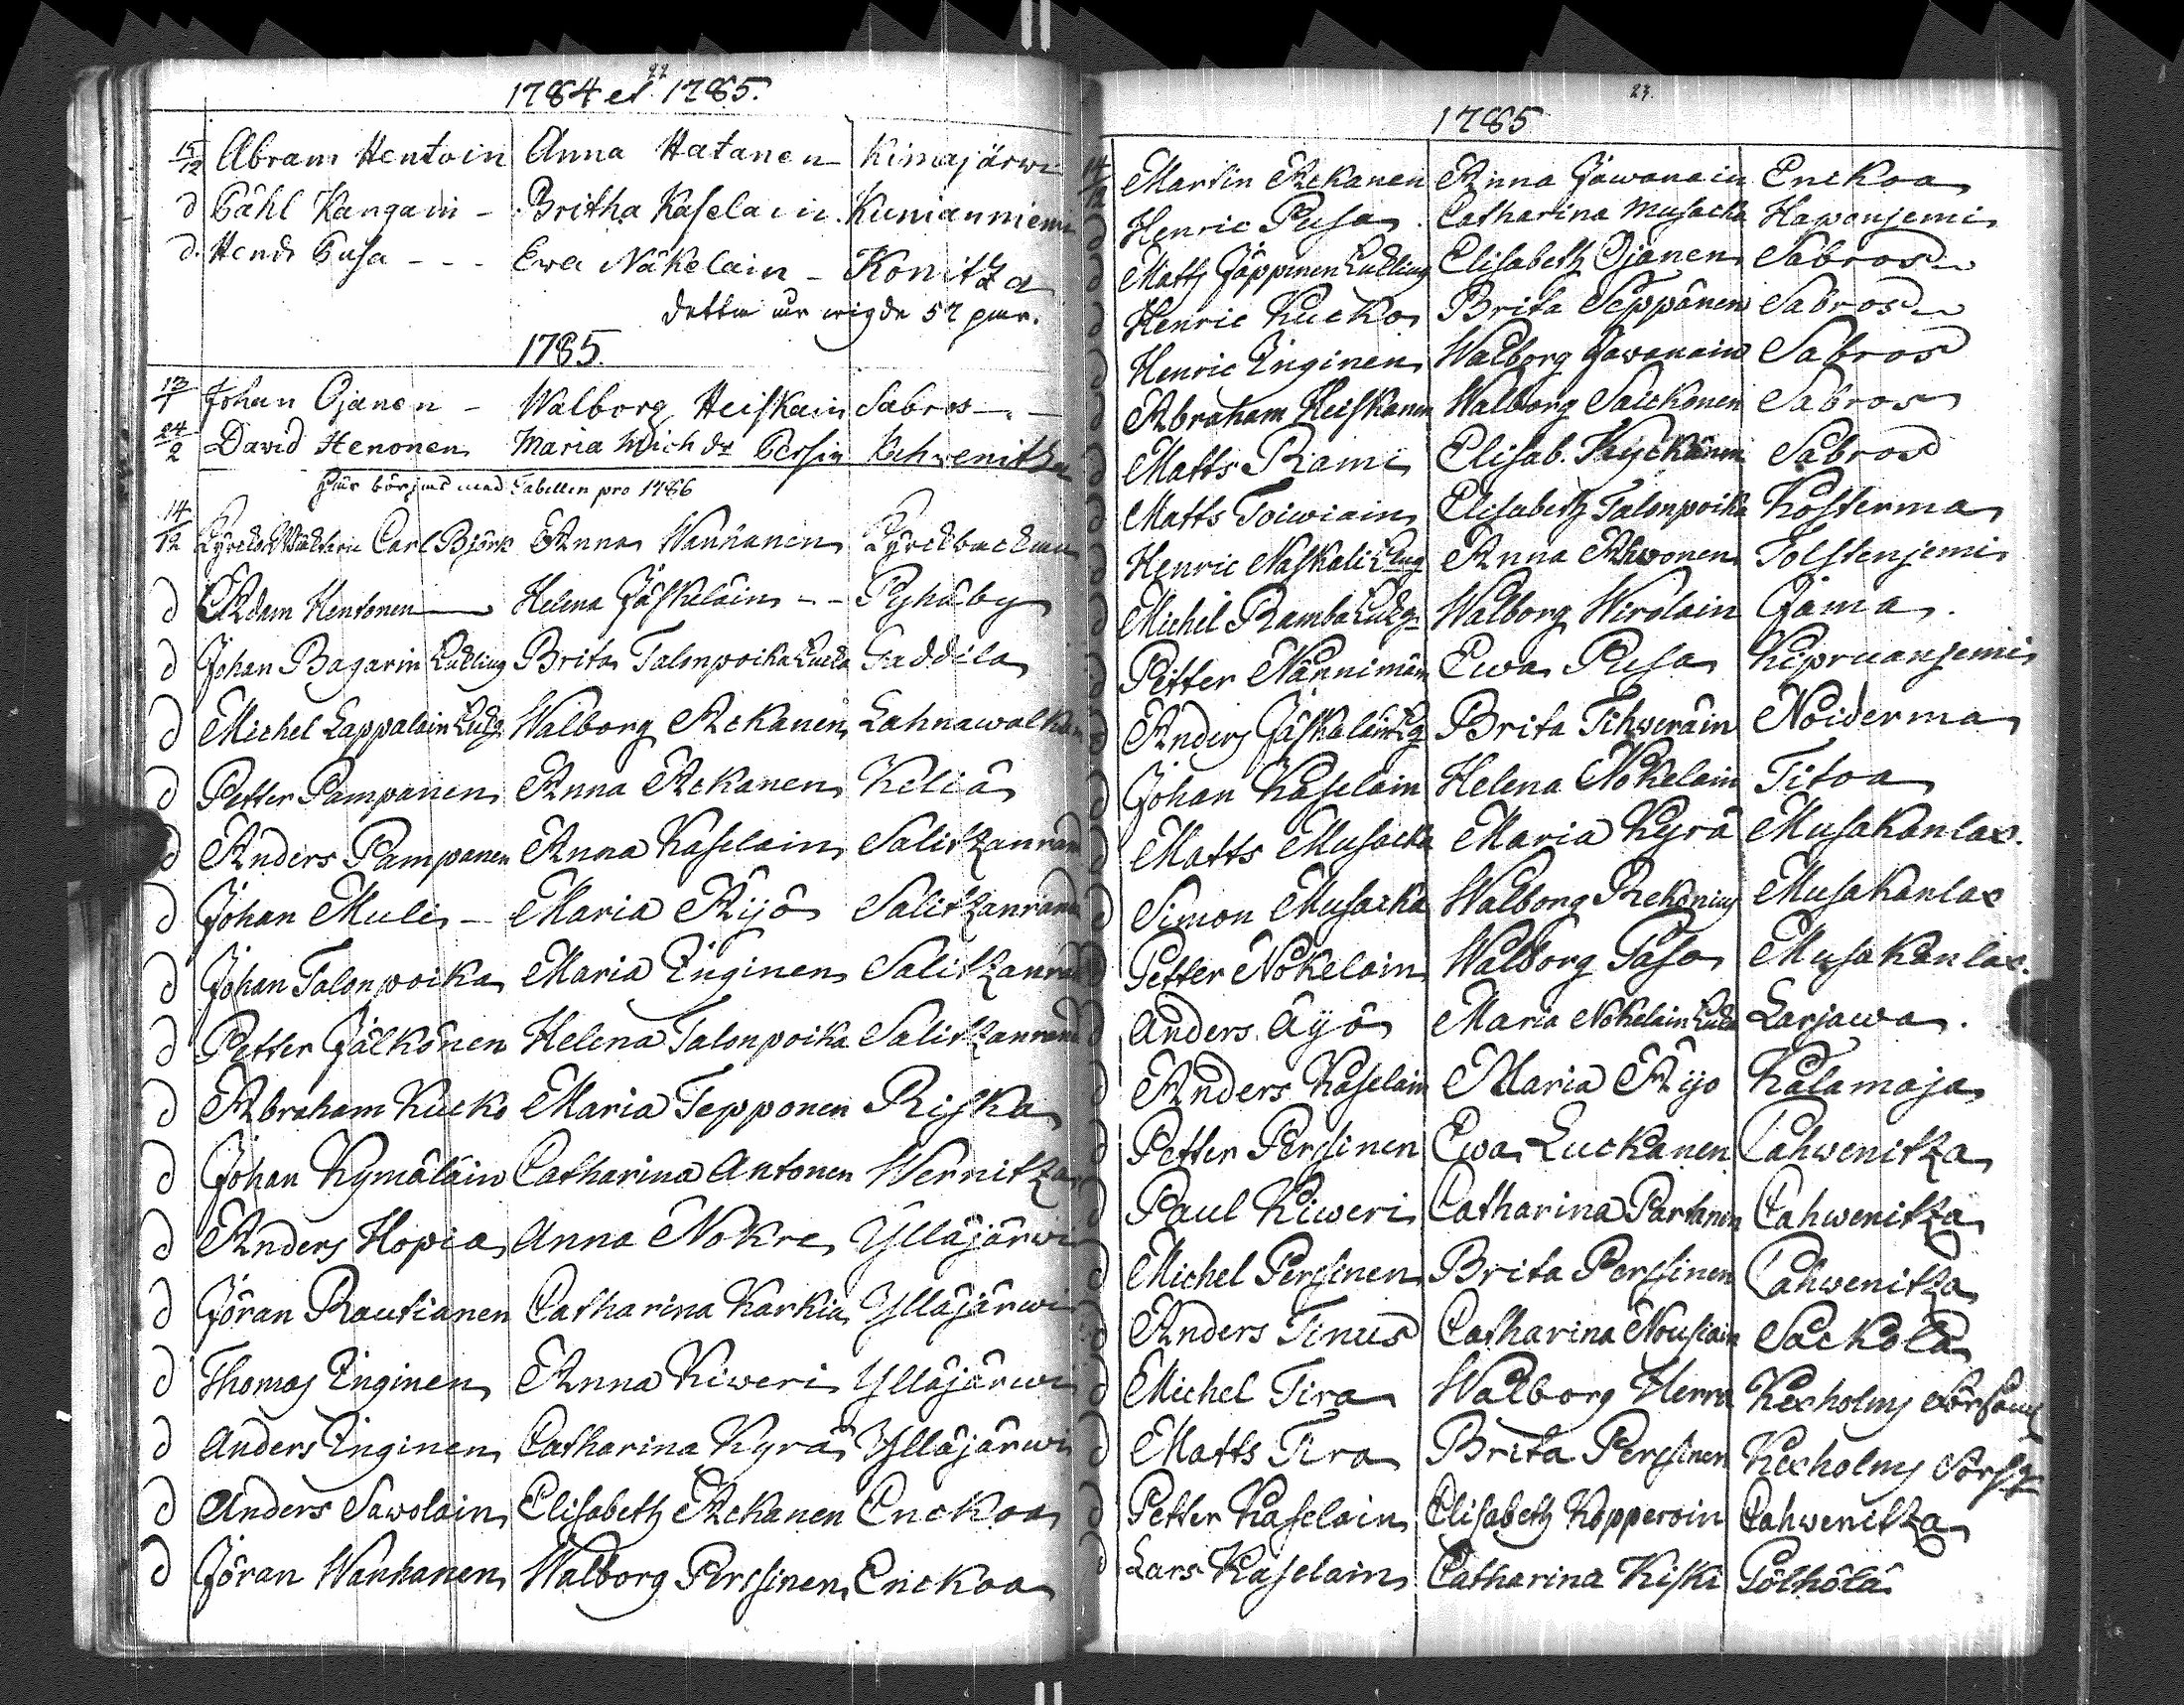 22
1784 et 1785.
15/12 Abram Hentoin Anna Hatanen Kimajärwi
d Påhl Kangain - Britha Kaselain. Kunianniemi
d. Hendr Pusa - - - Ewa Näkelain - Konitza
detta år wigde 52 par.
1785.
13/1 Johan Ojanen - Walborg Heiskain Sabros - -
24/2 David Henonen Maria Mich dr Persin Kahwenitza
Här börjas med Tabellen pro 1786
14/12 Carl Björk Anna Wanhanen
d Adam Hentonen Helena Jäskeläin - - Pyhäby
d Johan Bagarin Enkling Brita Talonpoika Encka Gaddila
d Michel Lappalain Enkg. Walborg Ackanen Lahnawalka
d Petter Pampanen Anna Ackanen Keliä
d Anders Pampanen Anna Kaselain Salitzanrand
d Johan Muli - Maria Äijö Salitzanranda
d Johan Talonpoika Maria Inginen Salitzanrand
d Petter Jälkönen Helena Talonpoika Salitzanrand
d Abraham Kucko Maria Tepponen Riska
d Johan Kymäläin Catharina Antonen Wernitza
d Anders Hopia Anna Nokre Ylläjärwi
d Jöran Rautianen Catharina Karkia Ylläjärwi
d Thomas Inginen Anna Kiweri Ylläjärwi
d Anders Inginen Catharina Kyrä Ylläjärwi
d Anders Sawolain Elisabeth Ackanen Enckoa
d Jöran Wanhanen Walborg Perssinen Enckoa
23.
1785
14/12 Martin Ackanen Anna Jäwanain Enckoa
d Henric Pusa Catharina Musacka Hapanjemi
d Matts Jäppinen Enkling Elisabeth Ojanen Sabros
d Henric Kucko Brita Seppänen Sabros
d Henric Inginen Walborg Jawanain Sabros
d Abraham Heiskanen Walborg Saickonen Sabros
d Matts Rami Elisab. Kyckänen Sabros
d Matts Toiwiain Elisabeth Talonpoika Kosterma
d Henric Naskali Enkg Anna Ahwonen Tolstenjemi
d Michel Ramba Enkg Walborg Wirolain Jäma.
d Petter Nännimän Ewa Pusa Kipruanjemi
d Anders Jäskaläin Brita Tihweräin Noiderma
d Johan Kaselain Helena Nokelain Titoa
d Matts Musacka Maria Kyrä Musakanlax.
d Simon Musacka Walborg Rekonius Musakanlax
d Petter Nokelain Walborg Paso Musakanlax.
d Anders Äyö Maria Nokelain Encka Larjawa.
d Anders Kaselain Maria Äijo Kalamaja
d Petter Perssinen Ewa Luckanen Cahwenitza
d Paul Kiweri Catharina Partanen Cahwenitza
d Michel Perssinen Brita Perssinen Cahwenitza
d Anders Tinus Catharina Nousiain Sackola
d Michel Tira Walborg Herra Kexholms
d Matts Tira Brita Perssinen Kexholms
d Petter Kaselain Elisabeth Kopperoin Cahwenitza
d Lars Kaselain Catharina Kiski Pölhölä